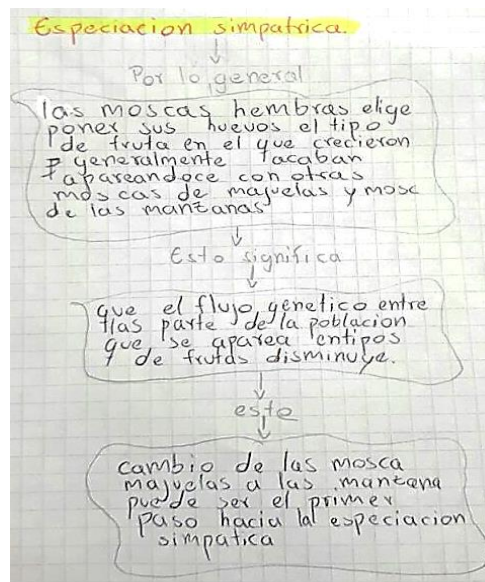 Especiacion simpatrica.
Por lo general
las moscas hembras elige
poner sus huevos el tipo
de fruta en el que crecieron
y generalmente acaban
apareandoce con otras
moscas de majuelas y mosc
de las manzanas
Esto significa
que el flujo genetico entre
las parte de la poblacion
que se aparea entipos
de frutas disminuye.
este
cambio de las mosca
majuelas a las manzana
puede ser el primer
paso hacia la especiacion
simpatica